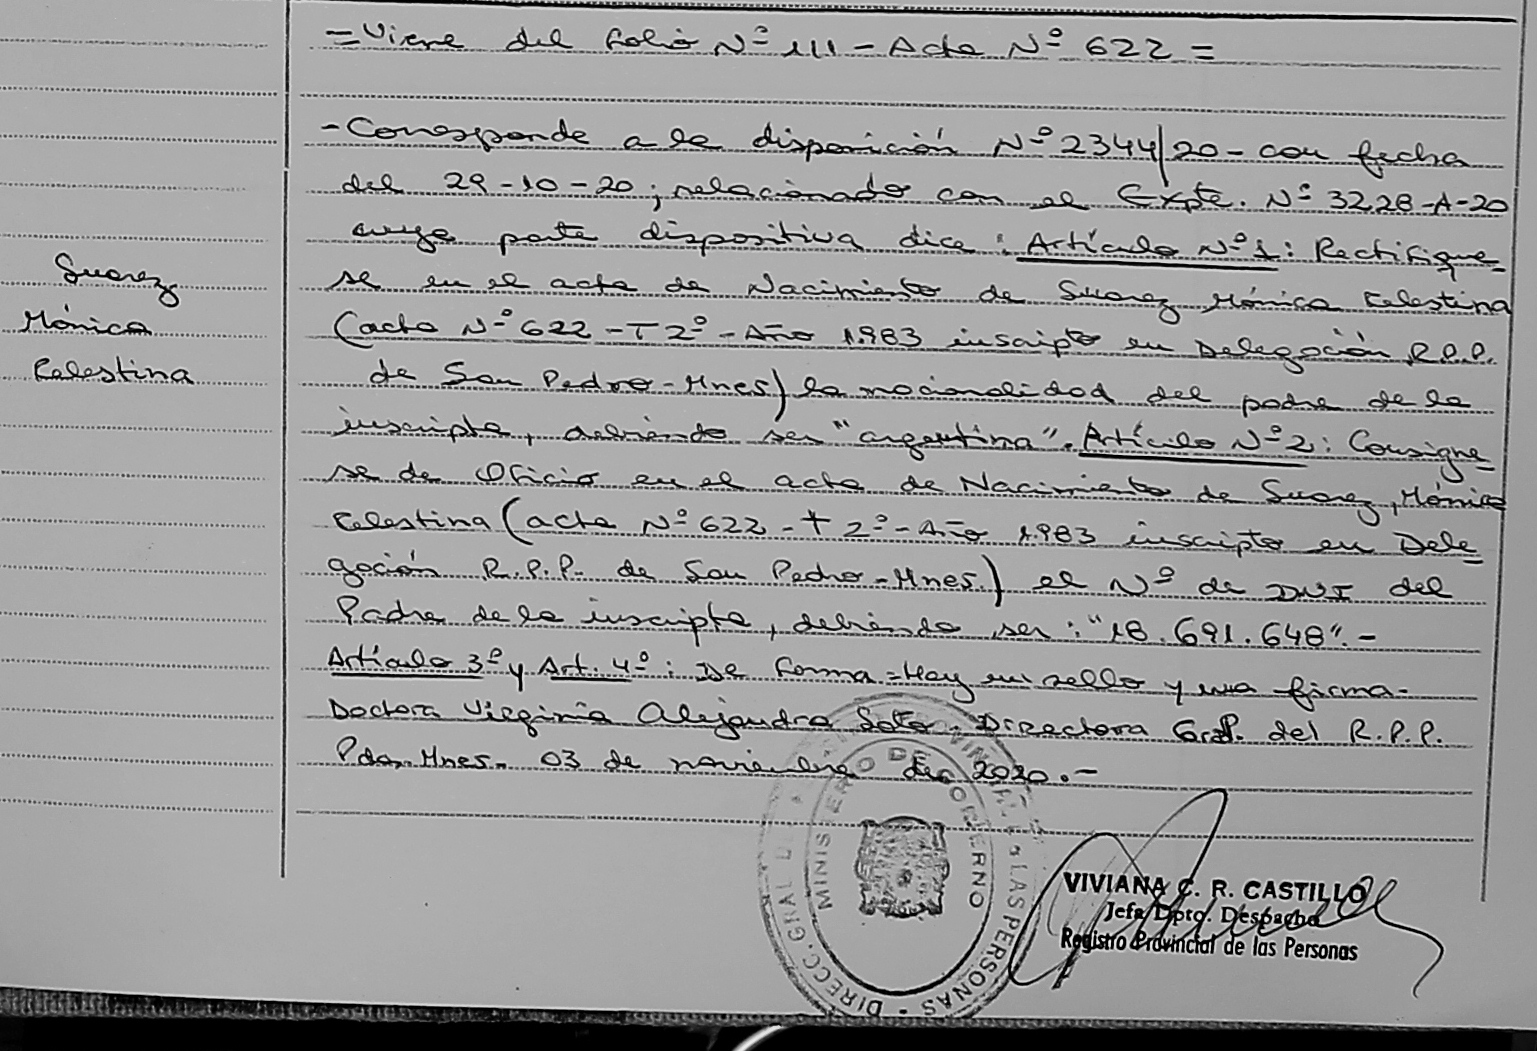 = Viene del folio Nº 111 - Acta Nº 622 =
- Corresponde a la disposición Nº 2344/20 - con fecha
del 29-10-20; relacionado con el Expte. Nº 3228-A-20
cuya parte dispositiva dice: Artículo Nº 1: Rectifíque-
se en el acta de Nacimiento de Suarez Mónica Celestina
(acta Nº 622 - T 2º - Año 1.983 inscripta en Delegación R.P.P.
de San Pedro - Mnes) la nacionalidad del padre de la
inscripta, debiendo ser "argentina". Artículo Nº 2: Consígne-
se de Oficio en el acta de Nacimiento de Suarez, Mónica
Celestina (acta Nº 622 - T 2º - Año 1.983 inscripta en Dele-
gación R.P.P. de San Pedro - Mnes.) el Nº de DNI del
Padre de la inscripta, debiendo ser: "18.691.648". -
Artículo 3º y Art. 4º: De forma = Hay un sello y una firma -
Doctora Virginia Alejandra Soto - Directora Gral. del R.P.P.
Pdas. Mnes. 03 de noviembre de 2020. -
Suarez
Mónica
Celestina
MINISTERIO DE GOBIERNO
DIRECC. GRAL DE LAS PERSONAS
VIVIANA C. R. CASTILLO
Jefa Dpto. Despacho
Registro Provincial de las Personas